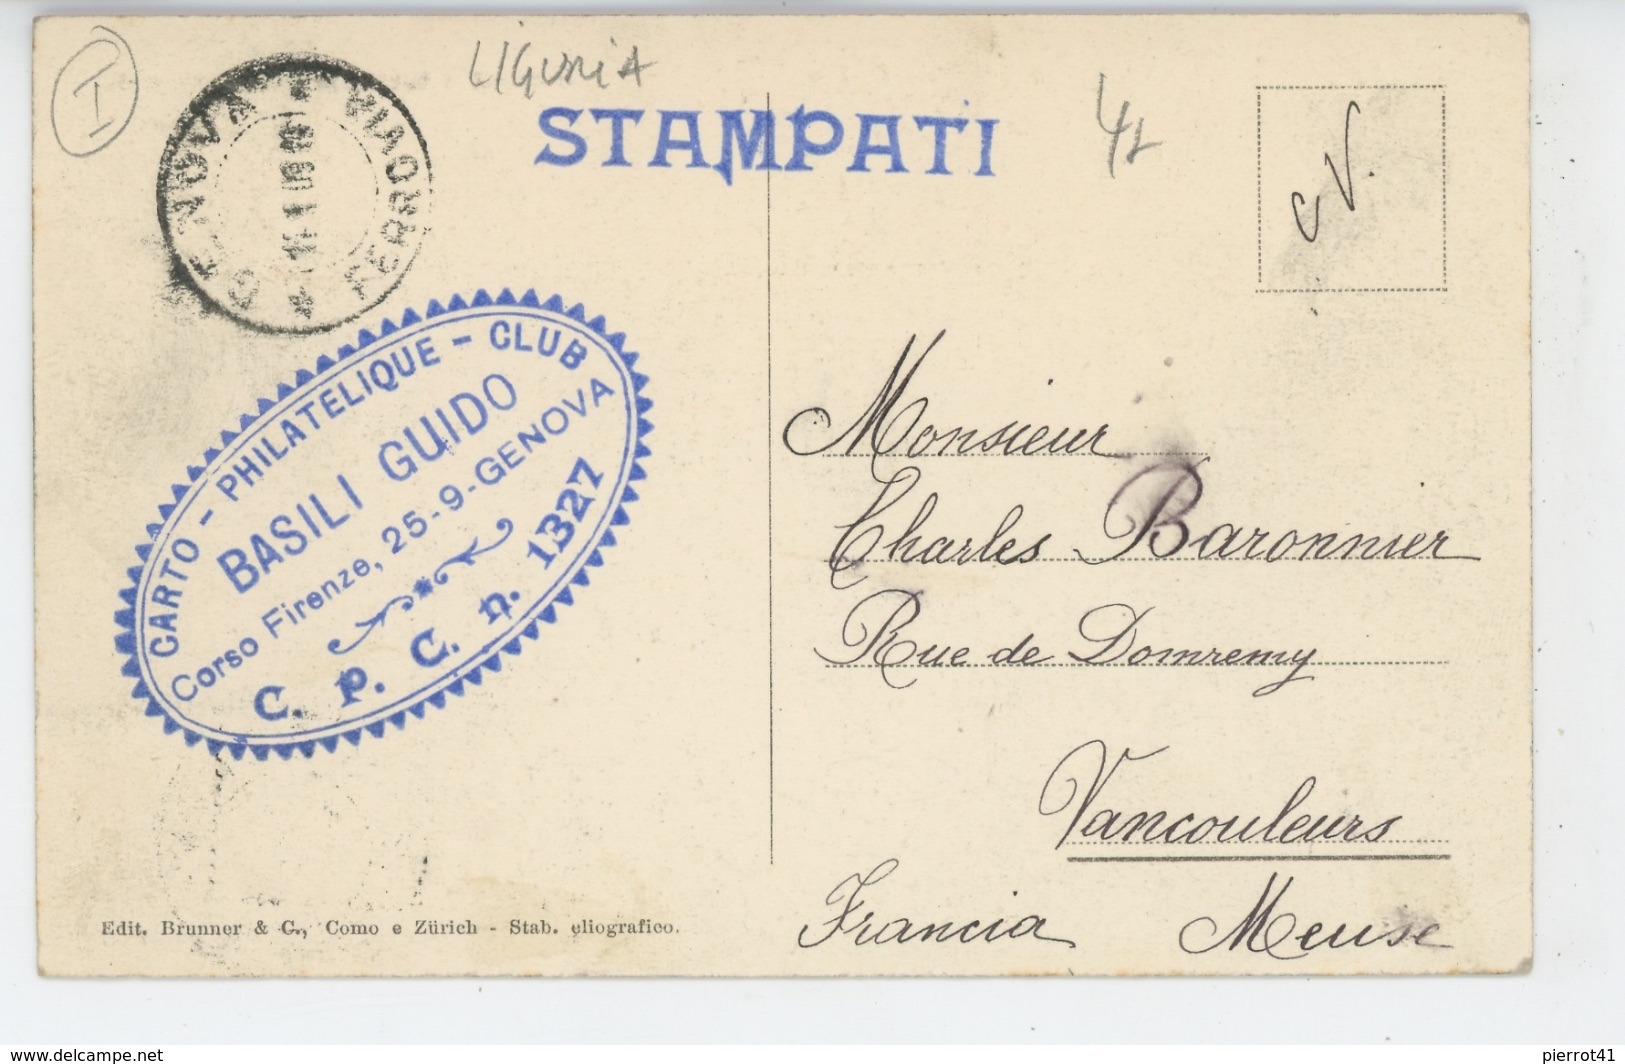 I
LIGURIA
STAMPATI
GENOVA * FERROVIA *
C V.
CARTO - PHILATELIQUE - CLUB
BASILI GUIDO
Corso Firenze, 25-9-GENOVA
C. P. C. n. 1327
Monsieur
Charles Baronnier
Rue de Domremy
Vancouleurs
Francia Meuse
Edit. Brunner & C., Como e Zürich - Stab. eliografico.
www.delcampe.net
pierrot41